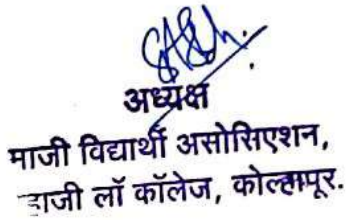 अध्यक्ष
माजी विद्यार्थी असोसिएशन,
हाजी लॉ कॉलेज, कोल्हापूर.